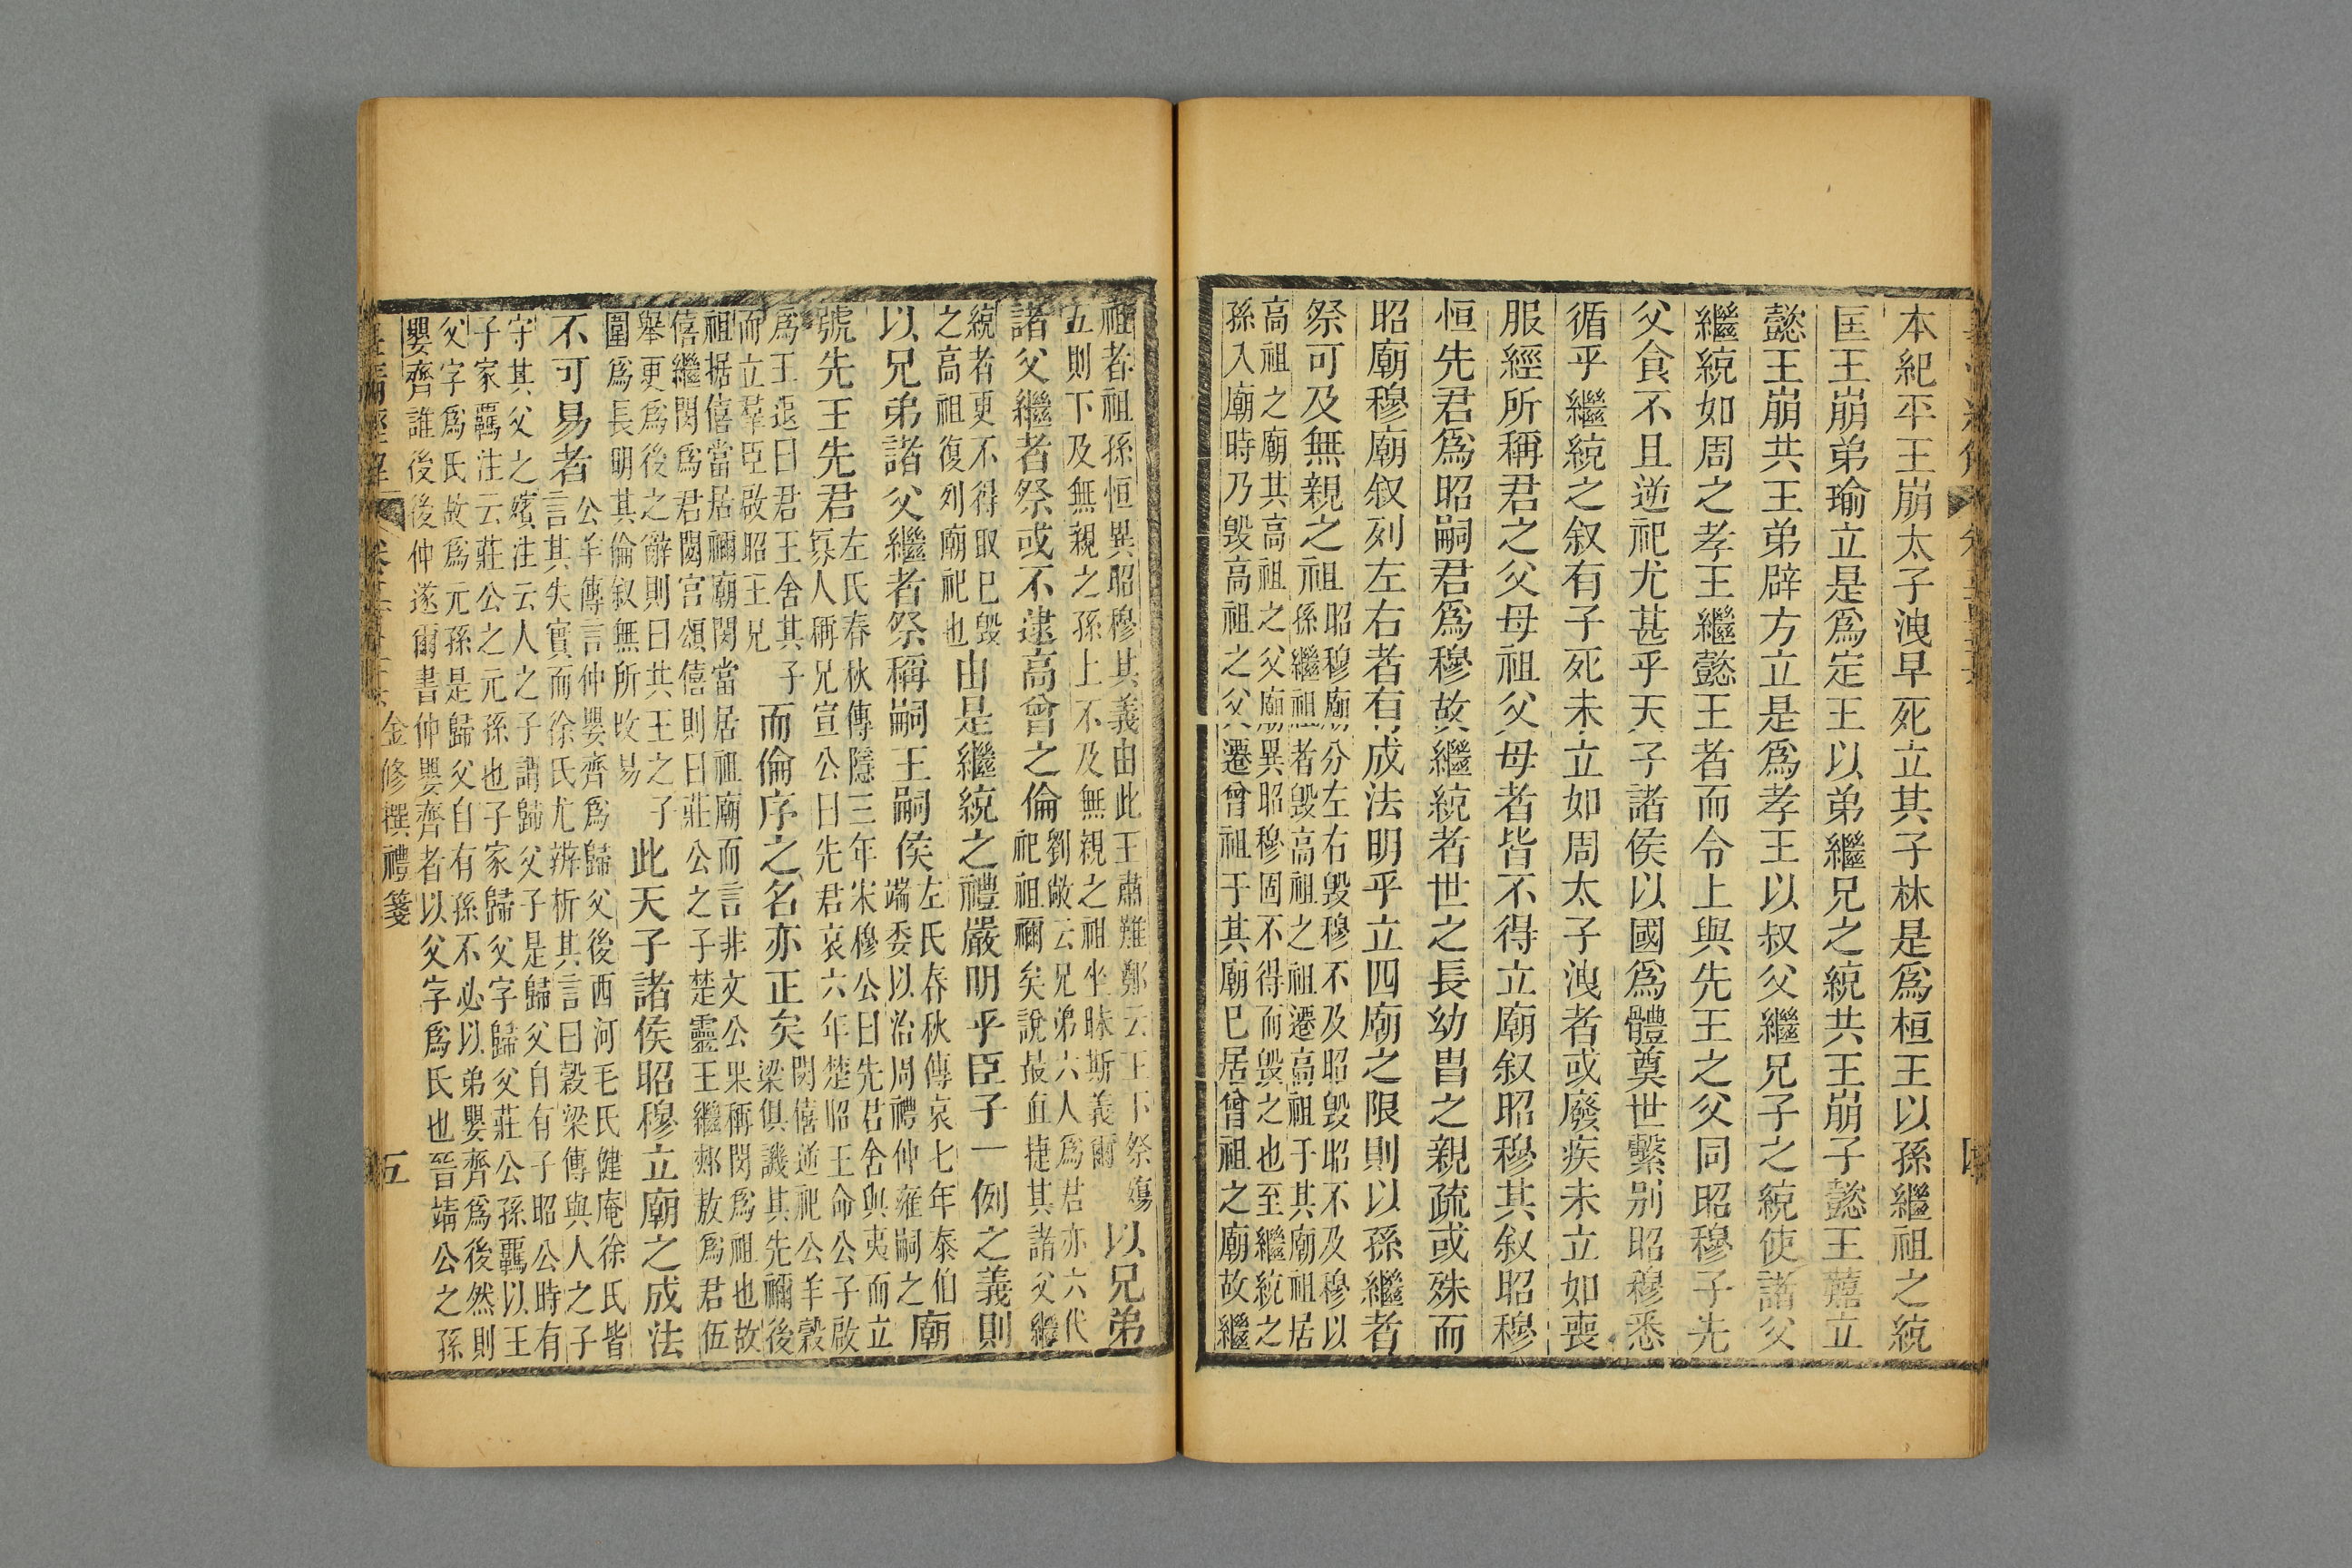 本紀平王崩太子洩早死立其子林是爲桓王以孫繼祖之統
匡王崩弟瑜立是爲定王以弟繼兄之統共王崩子懿王囏立
懿王崩共王弟辟方立是爲孝王以叔父繼兄子之統使諸父
繼統如周之孝王繼懿王者而令上與先王之父同昭穆子先
父食不且逆祀尤甚乎天子諸侯以國爲體奠世繫别昭穆悉
循乎繼統之叙有子死未立如周太子洩者或廢疾未立如喪
服經所稱君之父母祖父母者皆不得立廟叙昭穆其叙昭穆
恒先君爲昭嗣君爲穆故繼統者世之長幼昌之親疏或殊而
昭廟穆廟叙列左右者有成法明乎立四廟之限則以孫繼者
祭可及無親之祖
昭穆廟分左右毀穆不及昭毀昭不及穆以
孫繼祖者毀高祖之祖遷高祖于其廟祖居
高祖之廟其高祖之父廟異昭穆固不得而毀之也至繼統之
孫入廟時乃毀高祖之父遷曾祖于其廟已居曾祖之廟故繼
祖者祖孫恒異昭穆其義由此王肅難鄭云王下祭殤
五則下及無親之孫上不及無親之祖坐昧斯義爾
以兄弟
諸父繼者祭或不逮高曾之倫
劉敞云兄弟六人爲君亦六代
祀祖禰矣說最直捷其諸父繼
統者更不得取已毀
之高祖復列廟祀也
由是繼統之禮嚴明乎臣子一例之義則
以兄弟諸父繼者祭稱嗣王嗣侯
左氏春秋傳哀七年泰伯
端委以治周禮仲雍嗣之
廟
號先王先君
左氏春秋傳隱三年宋穆公曰先君舍與夷而立
寡人稱兄宣公曰先君哀六年楚昭王命公子啟
爲王退曰君王舍其子
而立羣臣啟昭王兄
而倫序之名亦正矣
閔僖逆祀公羊穀
梁俱譏其先禰後
祖据僖當居禰廟閔當居祖廟而言非文公果稱閔爲祖也故
僖繼閔爲君閟宮頌僖則曰莊公之子楚靈王繼郟敖爲君伍
舉更爲後之辭則曰共王之子
圍爲長明其倫叙無所改易
此天子諸侯昭穆立廟之成法
不可易者
公羊傳言仲嬰齊爲歸父後西河毛氏健庵徐氏皆
言其失實而徐氏尤辨析其言曰穀梁傳與人之子
守其父之殯注云人之子謂歸父子是歸父自有子昭公時有
子家羈注云莊公之元孫也子家歸父字歸父莊公孫羈以王
父字爲氏故爲元孫是歸父自有孫不必以弟嬰齊爲後然則
嬰齊誰後後仲遂爾書仲嬰齊者以父字爲氏也晉靖公之孫
金修撰禮箋
五